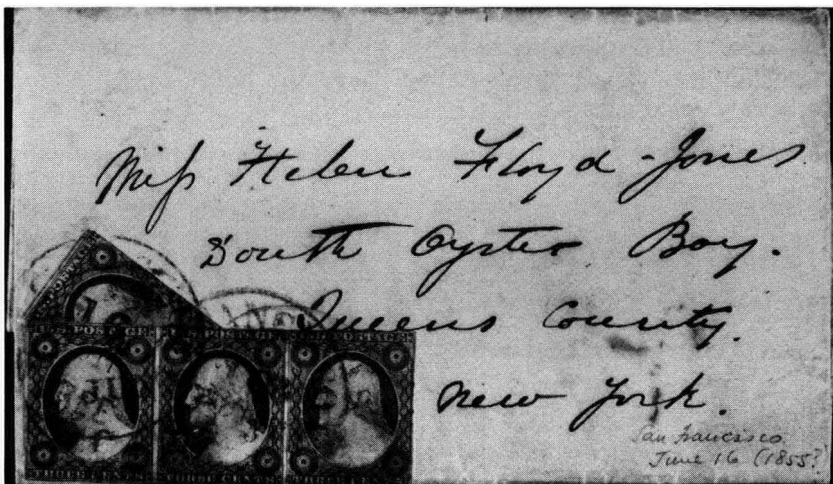 Miss Helen Floyd-Jones
South Oyster Bay.
Queens County.
New York.
San Francisco
June 16 (1855?
U.S. POSTAGE
U.S. POSTAGE U.S. POSTAGE U.S. POSTAGE
THREE CENTS THREE CENTS THREE CENTS